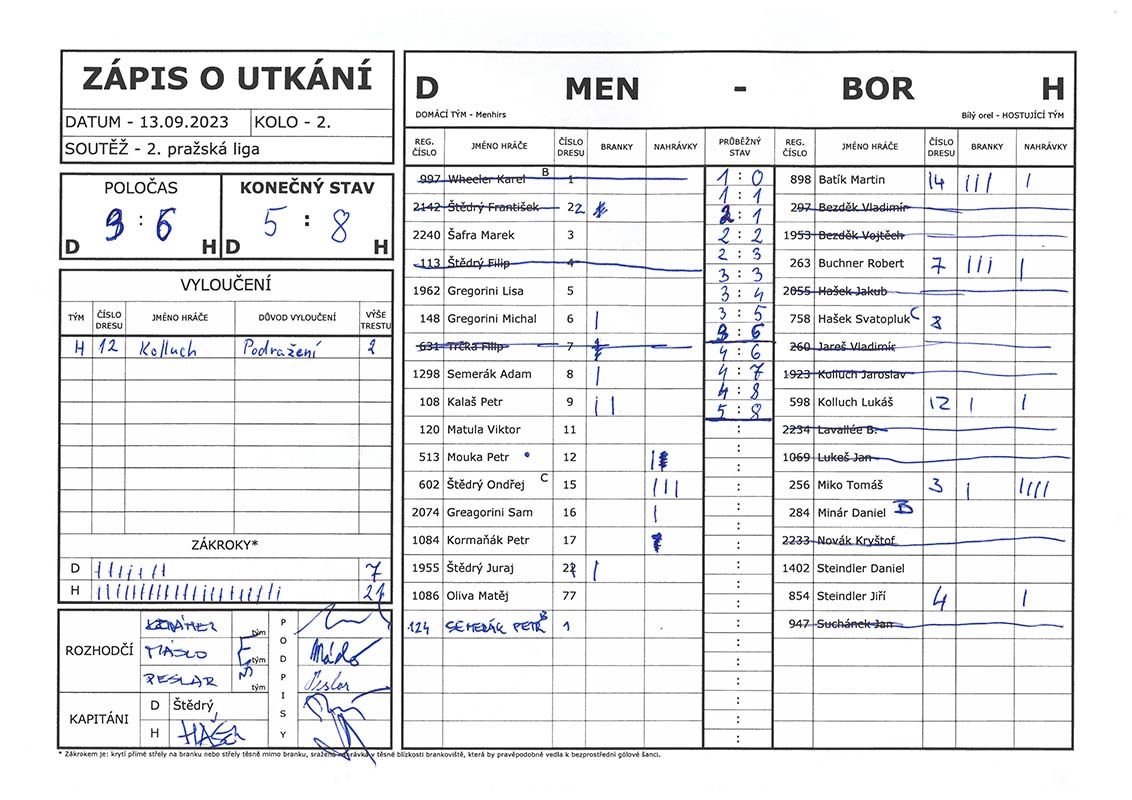 ZÁPIS O UTKÁNÍ
DATUM - 13.09.2023 KOLO - 2.
SOUTĚŽ - 2. pražská liga
POLOČAS KONEČNÝ STAV
3 : 6 5 : 8
D H D H
VYLOUČENÍ
TÝM ČÍSLO DRESU JMÉNO HRÁČE DŮVOD VYLOUČENÍ VÝŠE TRESTU
H 12 Kolluch Podražení 2
ZÁKROKY*
D 7
H 21
ROZHODČÍ
KRÁMER tým
MÁSLO tým
PESLAR tým
PODPISY
Máslo
Peslar
KAPITÁNI
D Štědrý
H
D MEN - BOR H
DOMÁCÍ TÝM - Menhirs Bílý orel - HOSTUJÍCÍ TÝM
REG. ČÍSLO JMÉNO HRÁČE ČÍSLO DRESU BRANKY NAHRÁVKY
997 Wheeler Karel B 1
2142 Štědrý František 22
2240 Šafra Marek 3
113 Štědrý Filip 4
1962 Gregorini Lisa 5
148 Gregorini Michal 6 |
631 Trčka Filip 7
1298 Semerák Adam 8 |
108 Kalaš Petr 9 ||
120 Matula Viktor 11
513 Mouka Petr 12 |
602 Štědrý Ondřej C 15 |||
2074 Greagorini Sam 16 |
1084 Kormaňák Petr 17
1955 Štědrý Juraj 22 |
1086 Oliva Matěj 77
124 SEMERÁK PETR B 1
PRŮBĚŽNÝ STAV
1 : 0
1 : 1
2 : 1
2 : 2
2 : 3
3 : 3
3 : 4
3 : 5
3 : 6
4 : 6
4 : 7
4 : 8
5 : 8
REG. ČÍSLO JMÉNO HRÁČE ČÍSLO DRESU BRANKY NAHRÁVKY
898 Batík Martin 14 ||| |
297 Bezděk Vladimír
1953 Bezděk Vojtěch
263 Buchner Robert 7 ||| |
2055 Hašek Jakub
758 Hašek Svatopluk C 8
260 Jareš Vladimír
1923 Kolluch Jaroslav
598 Kolluch Lukáš 12 | |
2234 Lavallée B.
1069 Lukeš Jan
256 Miko Tomáš 3 | ||||
284 Minár Daniel B
2233 Novák Kryštof
1402 Steindler Daniel
854 Steindler Jiří 4 |
947 Suchánek Jan
* Zákrokem je: krytí přímé střely na branku nebo střely těsně mimo branku, sražená nahrávka v těsné blízkosti brankoviště, která by pravěpodobně vedla k bezprostřední gólové šanci.